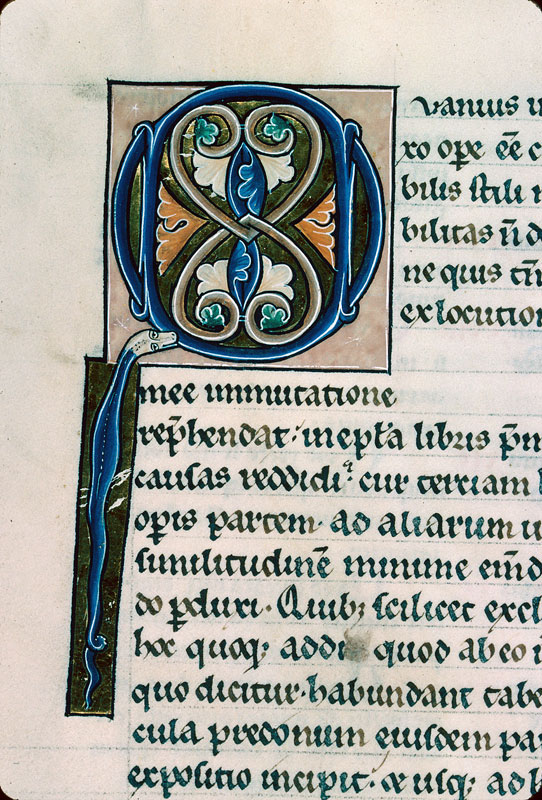 Quamus
xo ope ēē c
bilis stili
bilitas n̄ d
ne quis
exlocution
mee inmutatione
rep̄hendat; inept̄a libris p̄m
causas reddidi qͣ cur terciam
opis partem ad aliarum u
similitudinē minime
do ꝑduxi. Quibꝫ scilicet excl
hoc quoqꝫ addi quod ab eo
quo dicitur habundant tabe
cula predonum eiusdem pa
expositio incipit; & usqꝫ ad